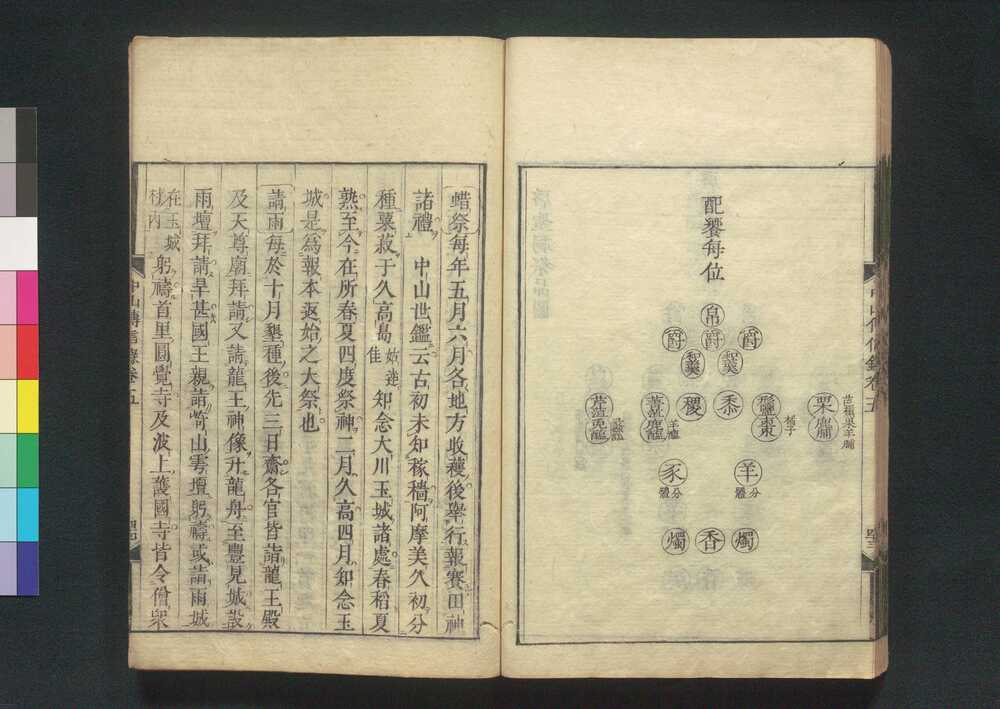 配饗每位
帛
爵 爵 爵
和羹 和羹
芹菹 兎醢
菁菹 鹿醢
稷
黍
形鹽 棗
栗 鹿脯
豕
分體
羊
分體
燭 香 燭
中山傳信錄卷五
蜡祭每年五月六月各地方收穫後舉行報賽田神
諸禮 中山世鑑云古初未知稼穡阿摩美久初分
種菓菽于久高島始達佳知念大川玉城諸處春稻夏
熟至今在所春夏四度祭神二月久高四月知念玉
城是爲報本返始之大祭也
請雨每於十月墾種後先三日齋各官皆詣龍王殿
及天尊廟拜請又請龍王神像升龍舟至豐見城設
雨壇拜請旱甚國王親詣 山雩壇躬禱或詣雨城
在玉城 躬禱首里圓覺寺及波上護國寺皆令僧衆
中山傳信錄卷五